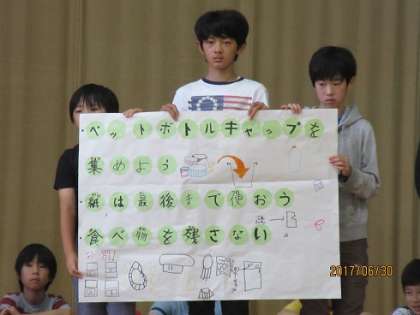 ペットボトルキャップを
集めよう
紙は最後まで使おう
食べ物を残さない
2017/06/30